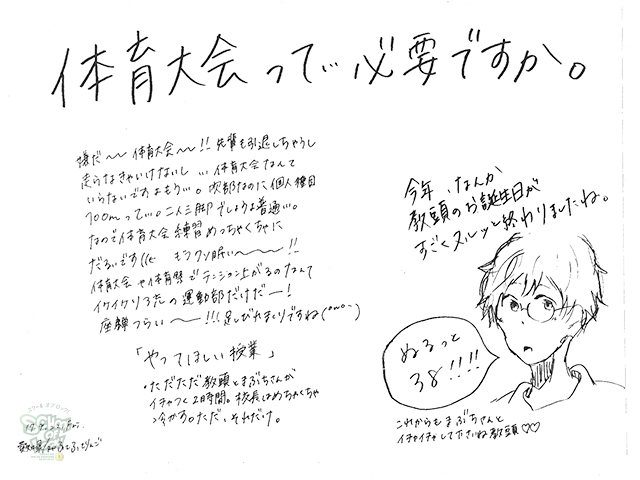 体育大会って必要ですか。
嫌だ〜〜体育大会〜〜!!先輩も引退しちゃうし
走らなきゃいけないし…体育大会なんて
いらないですよもう…。なのに個人種目
100mって…。二人三脚でしょうよ普通…。
なので体育大会練習めっちゃくちゃに
だるいです もうクソ眠い〜〜〜!!
体育大会や体育祭でテンション上がるのなんて
イケイケゴリゴリの運動部だけだー!
座談つらい〜〜!!足しびれまくりですね
「やってほしい授業」
・ただただ教頭とまぶちさんが
イチャつく2時間。校長はめちゃくちゃ
冷やかす。ただ、それだけ。
今年、なんか
教頭のお誕生日が
すごくヌルッと終わりましたね。
ぬるっと
38!!!!
これからもまぶちゃんと
イチャイチャして下さいね教頭♡♡